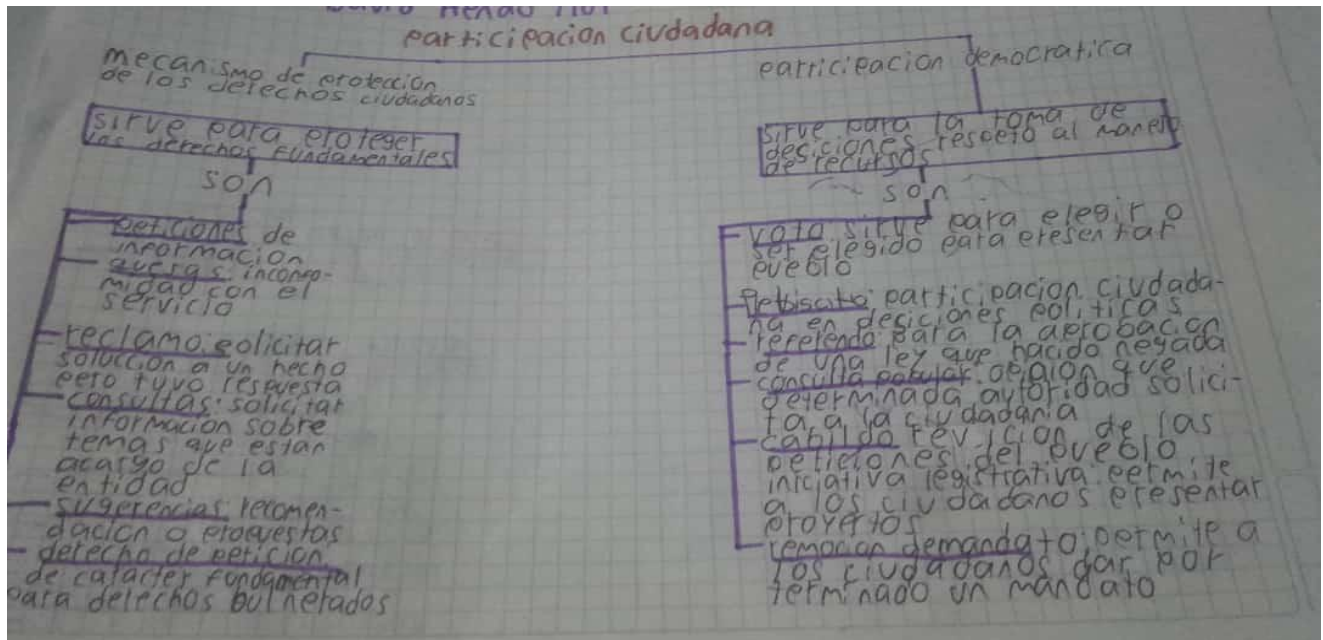 participacion ciudadana
mecanismo de proteccion
de los derechos ciudadanos
sirve para proteger
los derechos fundamentales
son
peticiones de
informacion
quejas: inconfo-
midad con el
servicio
reclamo: solicitar
soluccion a un hecho
pero tuvo respuesta
consultas: solicitar
informacion sobre
temas que estan
acargo de la
entidad
sugerencias recomen-
dacion o propuestas
derecho de peticion
de caracter fundamental
para derechos bulnerados
parricipacion democratica
sirve para la toma de
desiciones respeto al manejo
de recursos
son
voto sirve para elegir o
ser elegido para presentar
pueblo
plebiscito: participacion ciudada-
na en desiciones politicas
referendo para la aprobacion
de una ley que hacido negada
consulta popular: opnion que
determinada autoridad solici-
ta, a la ciudadania
cabildo revicion de las
peticiones del pueblo
iniciativa legistrativa: permite
a los ciudadanos presentar
proyertos
remocion demandato: permite a
los ciudadanos dar por
terminado un mandato